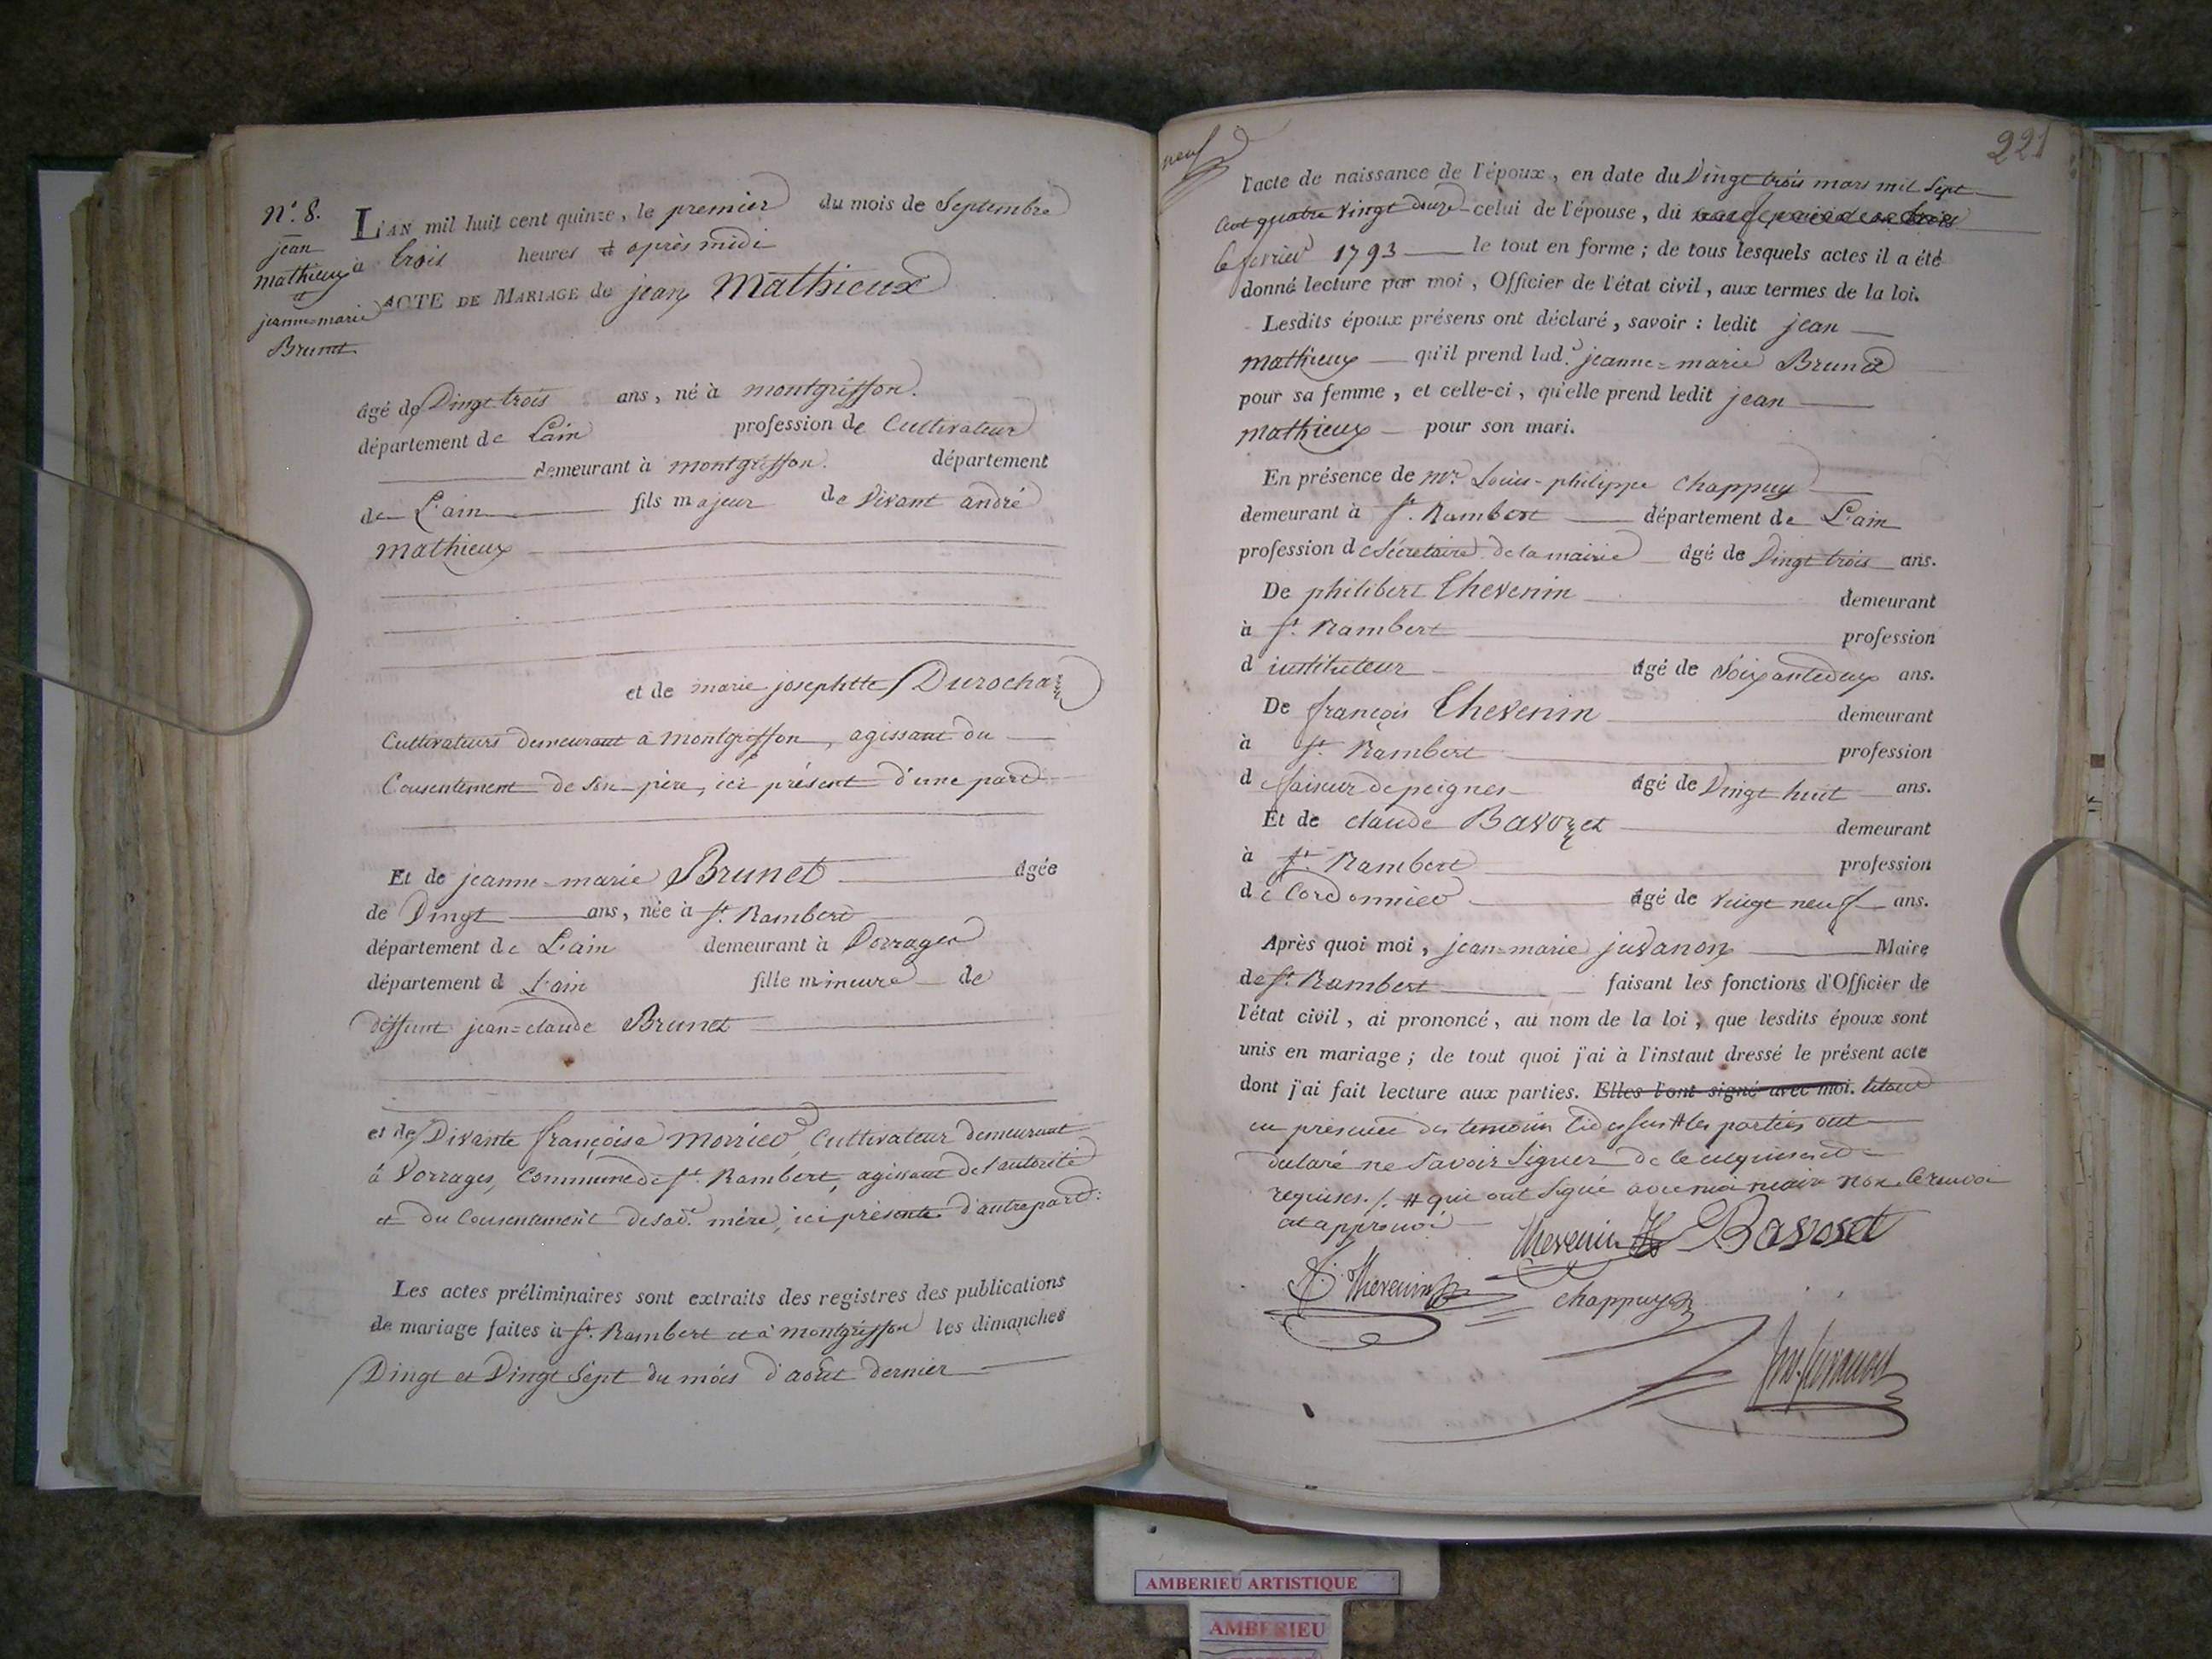 n.° 8.
jean
mathieux
et
jeanne=marie
Brunet
L'AN mil huit cent quinze, le premier du mois de Septembre
à trois heures après midi
ACTE DE MARIAGE de jean Mathieux
âgé de Vingt trois ans, né à montgriffon.
département de L'ain profession de Cultivateur
demeurant à montgriffon. département
de L'ain fils majeur de Vivant andré
mathieux
et de marie josephtte Durochat
Cultivateurs demeurant à Montgriffon, agissant du
Consentement de son père, ici présent d'une part
Et de jeanne=marie Brunet âgée
de Vingt ans, née à St. Rambert
département de L'ain demeurant à Vorrages
département d L'ain fille mineure de
deffunt jean=claude Brunet
et de Vivante françoise Morrier, Cultivateur demeurant
à Vorrages, Commune de St. Rambert, agissant de l'autorité
et du Consentement de sad.e mère, ici présente d'autre part:
Les actes préliminaires sont extraits des registres des publications
de mariage faites à St. Rambert et à montgriffon les dimanches
Vingt et Vingt Sept du mois d'août dernier
neuf
221
l'acte de naissance de l'époux, en date du Vingt trois mars mil Sept
Cent quatre Vingt douze celui de l'épouse, du
le fevrier 1793 le tout en forme; de tous lesquels actes il a été
donné lecture par moi, Officier de l'état civil, aux termes de la loi.
Lesdits époux présens ont déclaré, savoir: ledit jean
mathieux qu'il prend lad.e jeanne=marie Brunet
pour sa femme, et celle-ci, qu'elle prend ledit jean
mathieux pour son mari.
En présence de Mr. Louis-philippe Chappuy
demeurant à St. Rambert département de L'ain
profession de Sécretaire de la mairie âgé de Vingt trois ans.
De philibert Thevenin demeurant
à St. Rambert profession
d instituteur âgé de Soixante deux ans.
De françois Thevenin demeurant
à St. Rambert profession
d faiseur de peignes âgé de Vingt huit ans.
Et de claude Bavozet demeurant
à St. Rambert profession
de Cordonnier âgé de vingt neuf ans.
Après quoi moi, jean=marie juvanon Maire
de St. Rambert faisant les fonctions d'Officier de
l'état civil, ai prononcé, au nom de la loi, que lesdits époux sont
unis en mariage; de tout quoi j'ai à l'instant dressé le présent acte
dont j'ai fait lecture aux parties. Elles l'ont signé avec moi. le tout
en présence des temoins cidessus # les parties ont
declaré ne Savoir Signer de ce enquises et
requises ./. # qui ont Signé avec moi maire le renvoi
approuvé
thevenin Bavoset
thevenin
chappuy
juvanon
AMBERIEU ARTISTIQUE
AMBERIEU